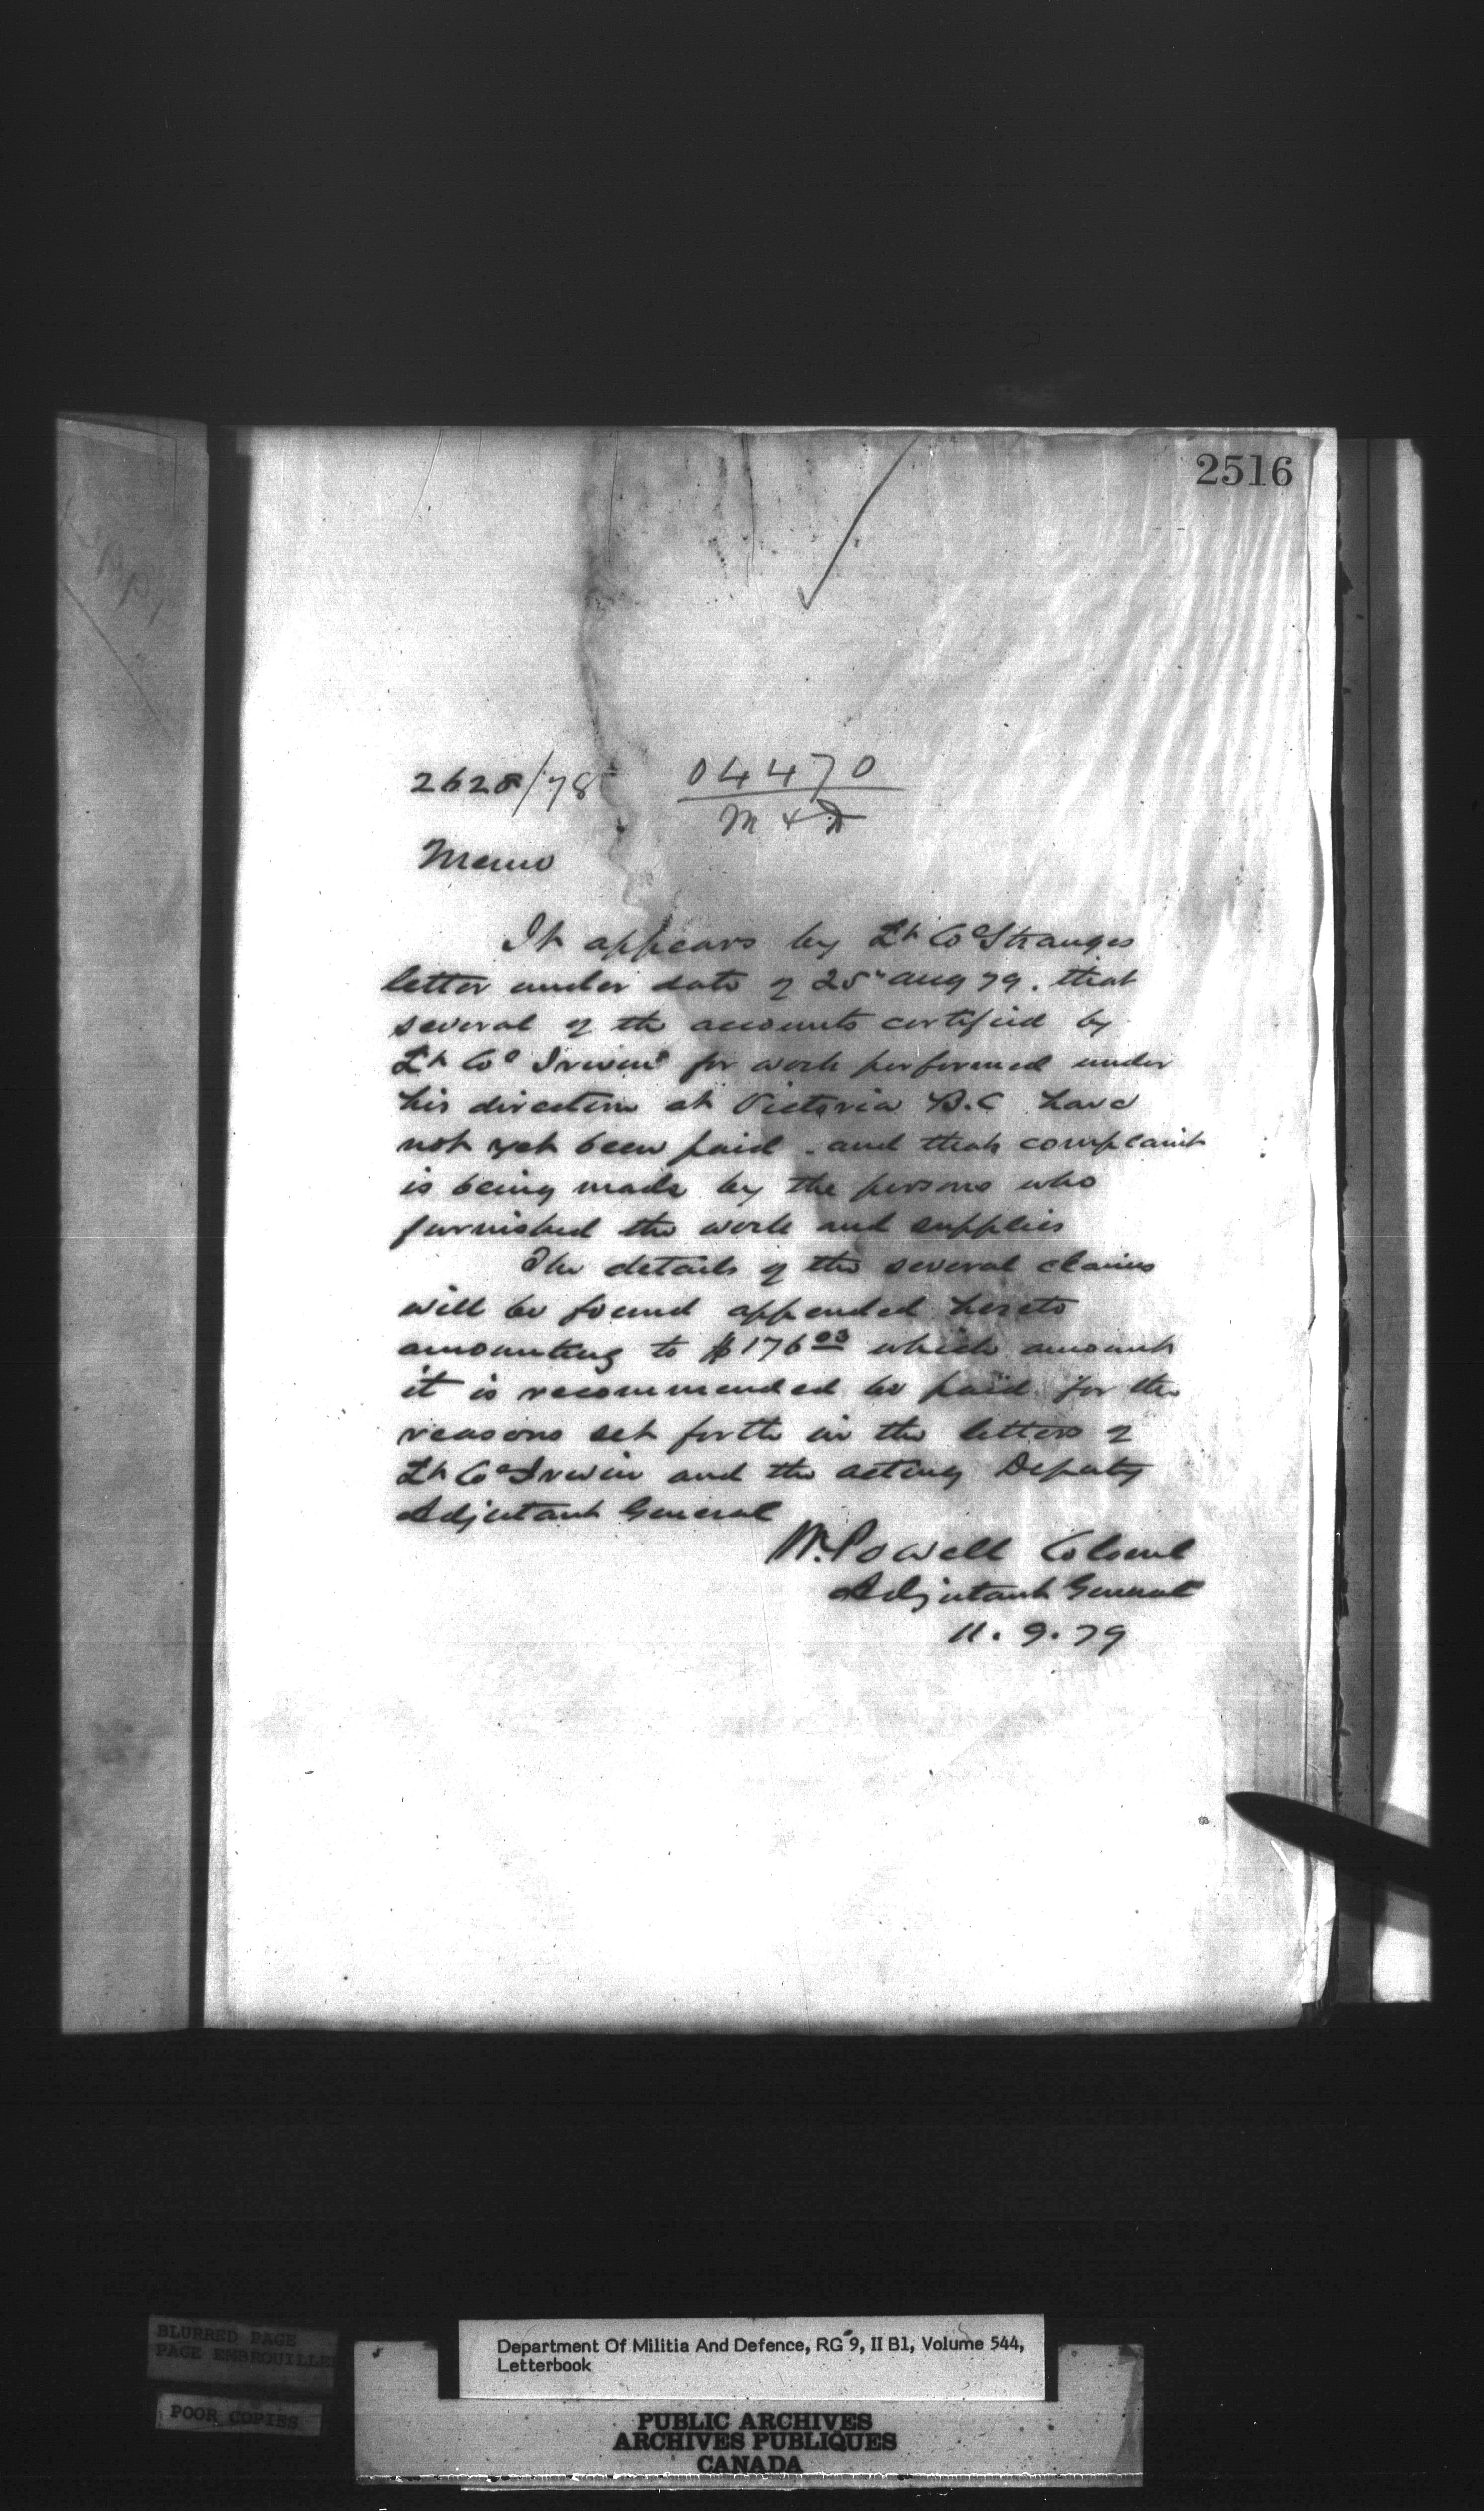 2516
2628/78
04470
M & D
Memo
It appears by Lt Col Stranges
letter under date of 25th Aug 79. that
several of the accounts certified by
Lt Col Irwin for work performed under
his direction at Victoria B.C have
not yet been paid - and that complaint
is being made by the persons who
furnished the work and supplies
The details of the several claims
will be found appended hereto
amounting to $176 03 which amount
it is recommended be paid for the
reasons set forth in the letters of
Lt Col Irwin and the acting Deputy
Adjutant General
W. Powell Colonel
Adjutant General
11. 9. 79
BLURRED PAGE
PAGE EMBROUILLEE
POOR COPIES
Department Of Militia And Defence, RG 9, II B1, Volume 544,
Letterbook
PUBLIC ARCHIVES
ARCHIVES PUBLIQUES
CANADA